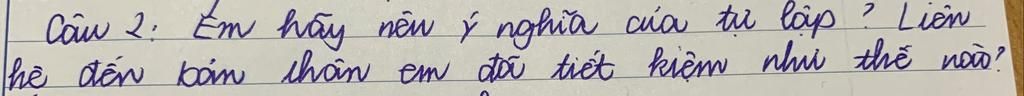 Câu 2: Em hãy nêu ý nghĩa của tự lập? Liên
hệ đến bản thân em đã tiết kiệm như thế nào?